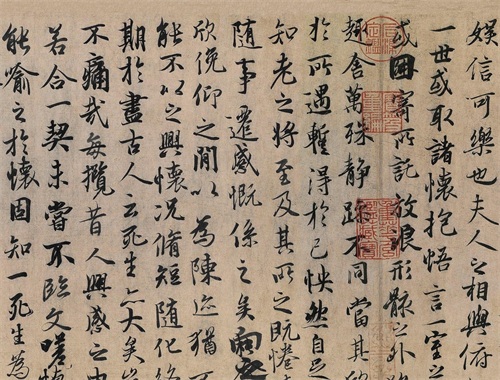 娛信可樂也夫人之相與俯
一世或取諸懷抱悟言一室之
或因寄所託放浪形骸之外
趣舍萬殊靜躁不同當其欣
於所遇暫得於己怏然自足
知老之將至及其所之既惓
隨事遷感慨係之矣向
欣俛仰之間以為陳迹猶不
能不以之興懷況脩短隨化終
期於盡古人云死生亦大矣豈
不痛哉每攬昔人興感之由
若合一契未嘗不臨文嗟悼
能喻之於懷固知一死生為